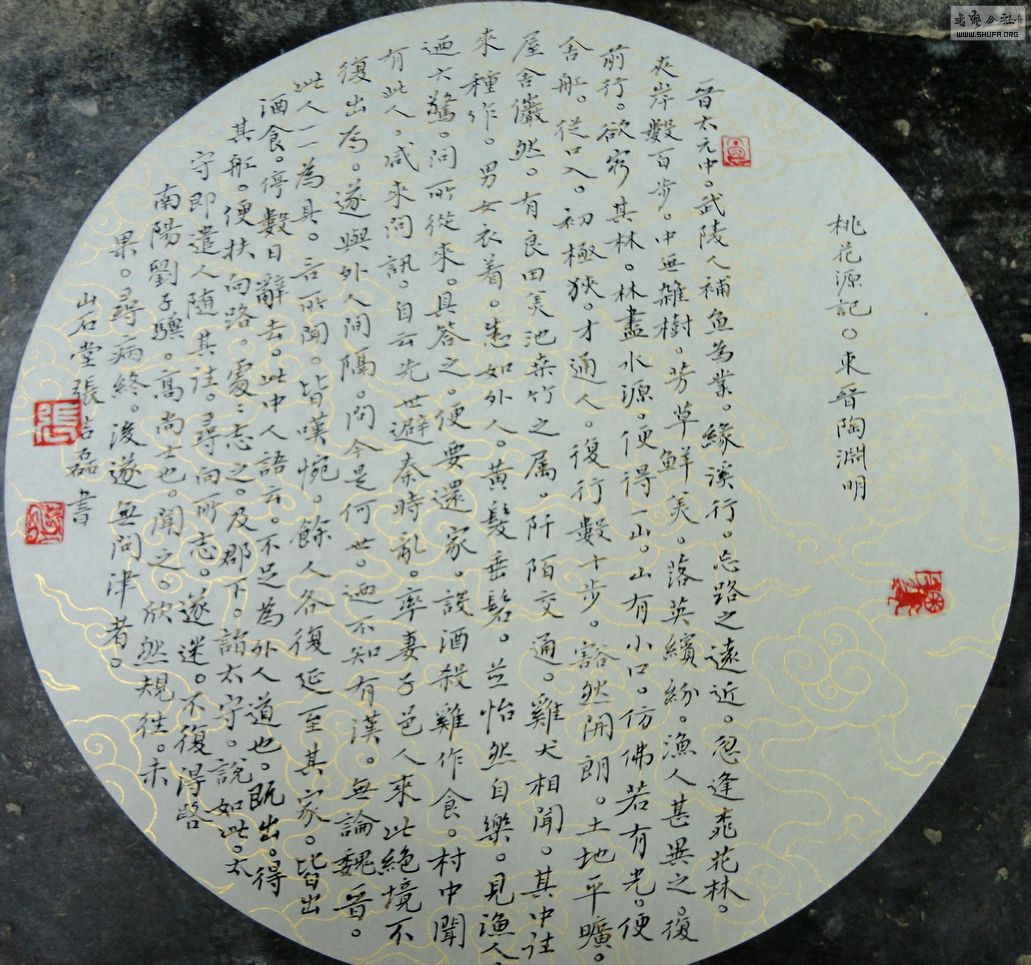 桃花源記。東晉陶淵明
晉太元中。武陵人補魚為業。緣溪行。忘路之遠近。忽逢桃花林。
夾岸數百步。中無雜樹。芳草鮮美。落英繽紛。漁人甚異之。復
前行。欲窮其林。林盡水源。便得一山。山有小口。仿佛若有光。便
舍船。從口入。初極狹。才通人。復行數十步。豁然開朗。土地平曠。
屋舍儼然。有良田美池桑竹之属。阡陌交通。雞犬相聞。其中往
來種作。男女衣着。悉如外人。黃髮垂髫。並怡然自樂。見漁人。
迺大驚。問所從來。具答之。便要還家。設酒殺雞作食。村中聞
有此人。咸來問訊。自云先世避秦時亂。率妻子邑人來此絕境不
復出焉。遂與外人間隔。問今是何世。迺不知有漢。無論魏晉。
此人一一為具。言所聞。皆嘆惋。餘人各復延至其家。皆出
酒食。停數日辭去。此中人語云。不足為外人道也。既出。得
其船。便扶向路。處:志之。及郡下。詣太守。說如此。太
守即遣人随其往。尋向所志。遂迷。不復得路
南陽劉子驥。高尚士也。聞之。欣然規往。未
果。尋病終。後遂無問津者。
山石堂張吉磊書
張
WWW.SHUFA.ORG